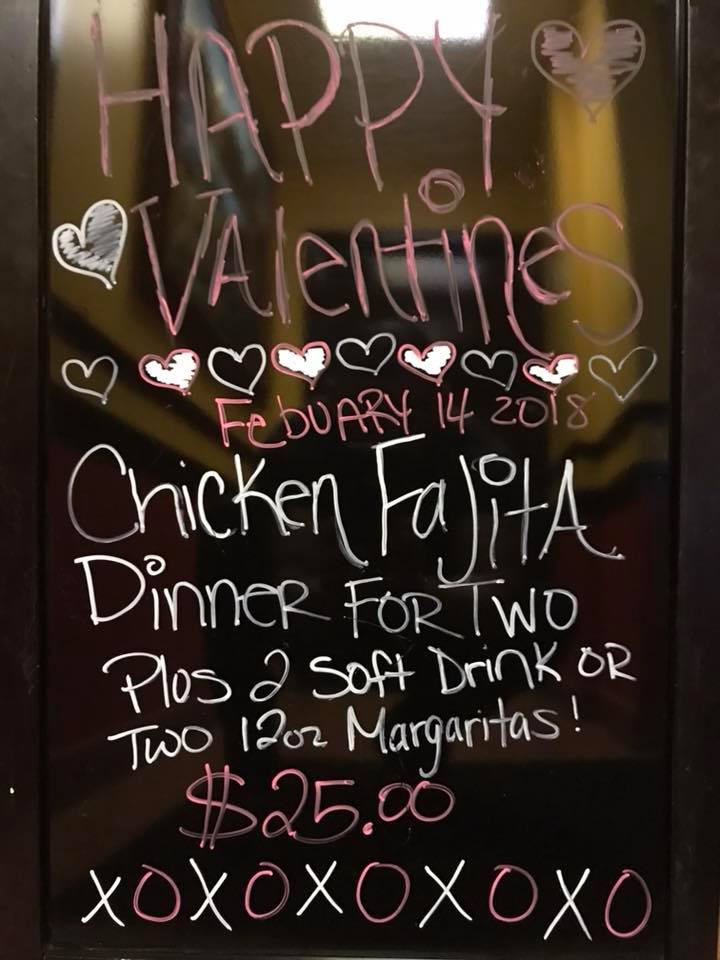 HAPPY
VAlentines
FebuARY 14 2018
Chicken FajitA
DinneR FOR Two
Plos 2 Soft Drink OR
Two 12oz Margaritas!
$25.00
XOXOXOXOXO